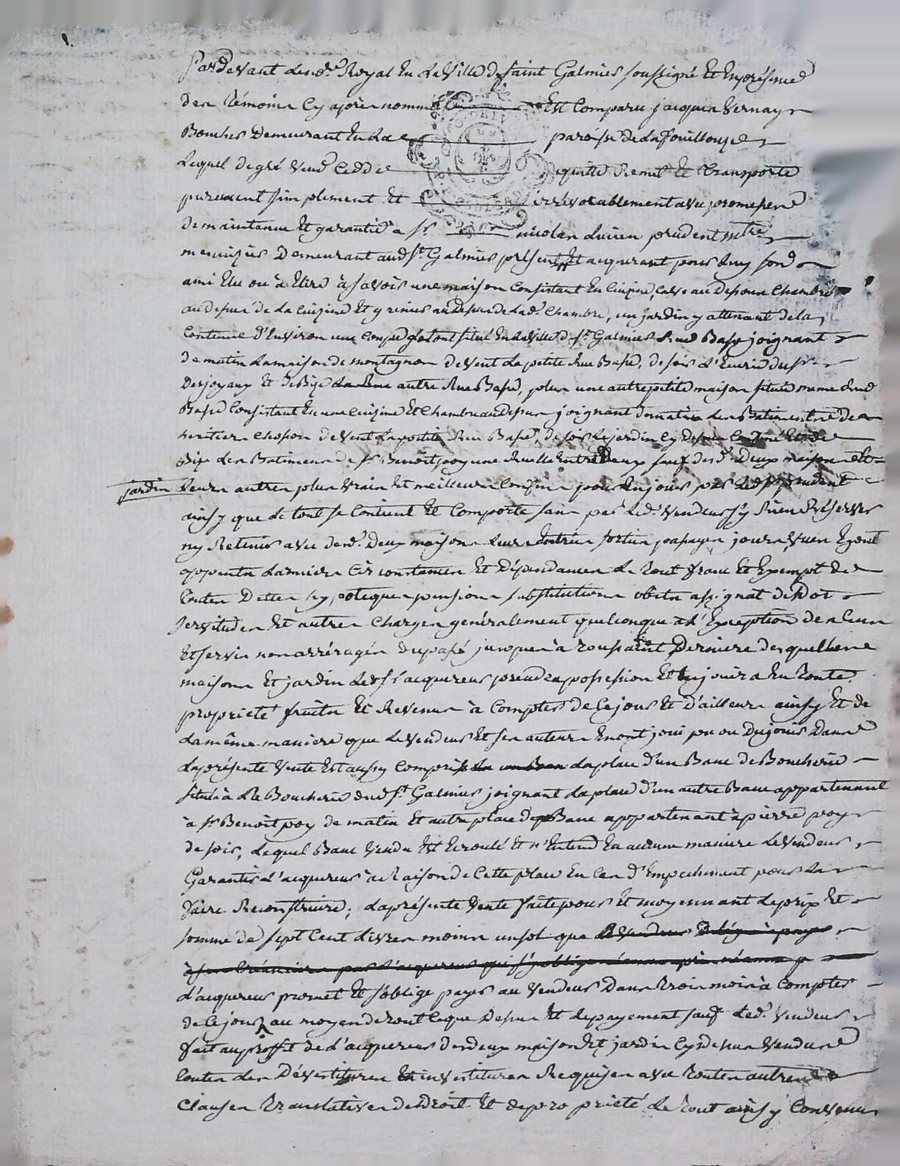 Par Devant le no.re Royal En la Ville de Saint Galmier soussigné Et En présence
des témoins Cy après nommé Est Comparu jacques Vernay
Boucher Demeurant En La parroisse de la fouillouze
Lequel de gré Vend Cedde quitte Remet Et Transporte
purement simplement Et irrévocablement avec promesse
de maintenue Et garantie a Sr nicolas Lucien prudent m.tre
menuisier Demeurant aud. St Galmier présent Et acquerant pour luy son
ami Elu ou à Elire à savoir une maison Consistant En Cuisine, Cave au Dessous Chambre
au dessus de La Cuisine Et grenier au Dessus de Lad. Chambre, un jardin y attenant de la
Contenue D'Environ une Coupe le tout situé En la Ville de St Galmier Rue Basse joignant
de matin La maison de montagnon de Vent La petite Rue Basse, de soir L'Ecurie du Sr
Desjoyaux Et de Bize une autre Rue Basse, plus une autre petite maison située meme Rue
Basse Consistant En une Cuisine Et Chambre au Dessus joignant de matin Les Batiments de
heritiers Chosson de Vent La petite Rue Basse, de soir Le jardin Cy dessus Confiné Et de
Bize Les Batiments de Sr Benoit poy une Ruelle Entre Deux sauf desd. Deux maisons Et
jardin Leurs autres plus Vrais Et meilleurs Confins pour En jouir par Led. Sr prudent
ainsy que le tout se Contient Et Comporte sans par Led. Vendeur s'y Rien Réserver
ny Retenir avec desd. Deux maisons Leurs Entrées sorties passages jours Vues Egout
appartenances Circonstances Et Dépendances Le tout franc Et Exempt de
toutes Dettes hypoteques pensions substitutions obits assignat de Dot
servitudes Et autres Charges généralement quelconques à L'Exception de Cens
Et servis non arréragés du passé jusques à Toussaint Derniere desquelles
maisons Et jardin Led. Sr acquereur prendra possession Et En jouira En toute
propriété fruits Et Revenus à Compter de Ce jour Et d'ailleurs ainsy Et de
La même maniere que Le Vendeur Et ses auteurs En ont joui pu ou Du jouir Dans
La présente Vente Est aussy Compris La place d'un Banc de Boucherie
situé à La Boucherie dud. St Galmier joignant La place d'un autre Banc appartenant
à Sr Benoit poy de matin Et autre place de Banc appartenant à pierre poy
de soir, Lequel Banc Vendu Est Ecroulé Et n'Entend En aucune maniere Le Vendeur
Garantir L'acquereur à Raison de Cette place En Cas d'Empechement pour La
faire Reconstruire; La présente Vente faite pour Et moyennant Le prix Et
somme de sept Cent Livres moins un sol que
L'acquereur promet Et s'oblige payer au Vendeur Dans trois mois à Compter
de Ce jour, au moyen de tout Ce que Dessus Et du payement sauf Led. Vendeur
fait au profit de L'acquereur des deux maisons Et jardin Cy dessus Vendus
toutes Les Dévestitures Et investitures Requises avec toutes autres
Clauses translatives de Droit Et de propriété Le tout ainsy Convenu